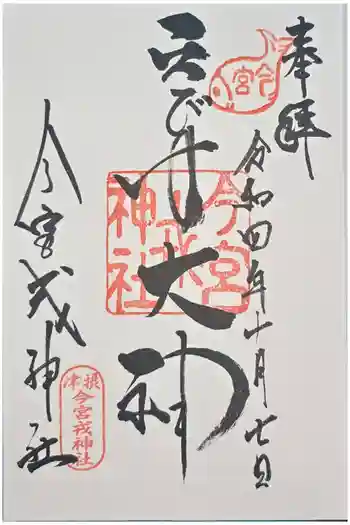 奉拝
今宮
令和四年十月七日
ゑびす大神
今宮戎神社
今宮戎神社
摂津
今宮戎神社